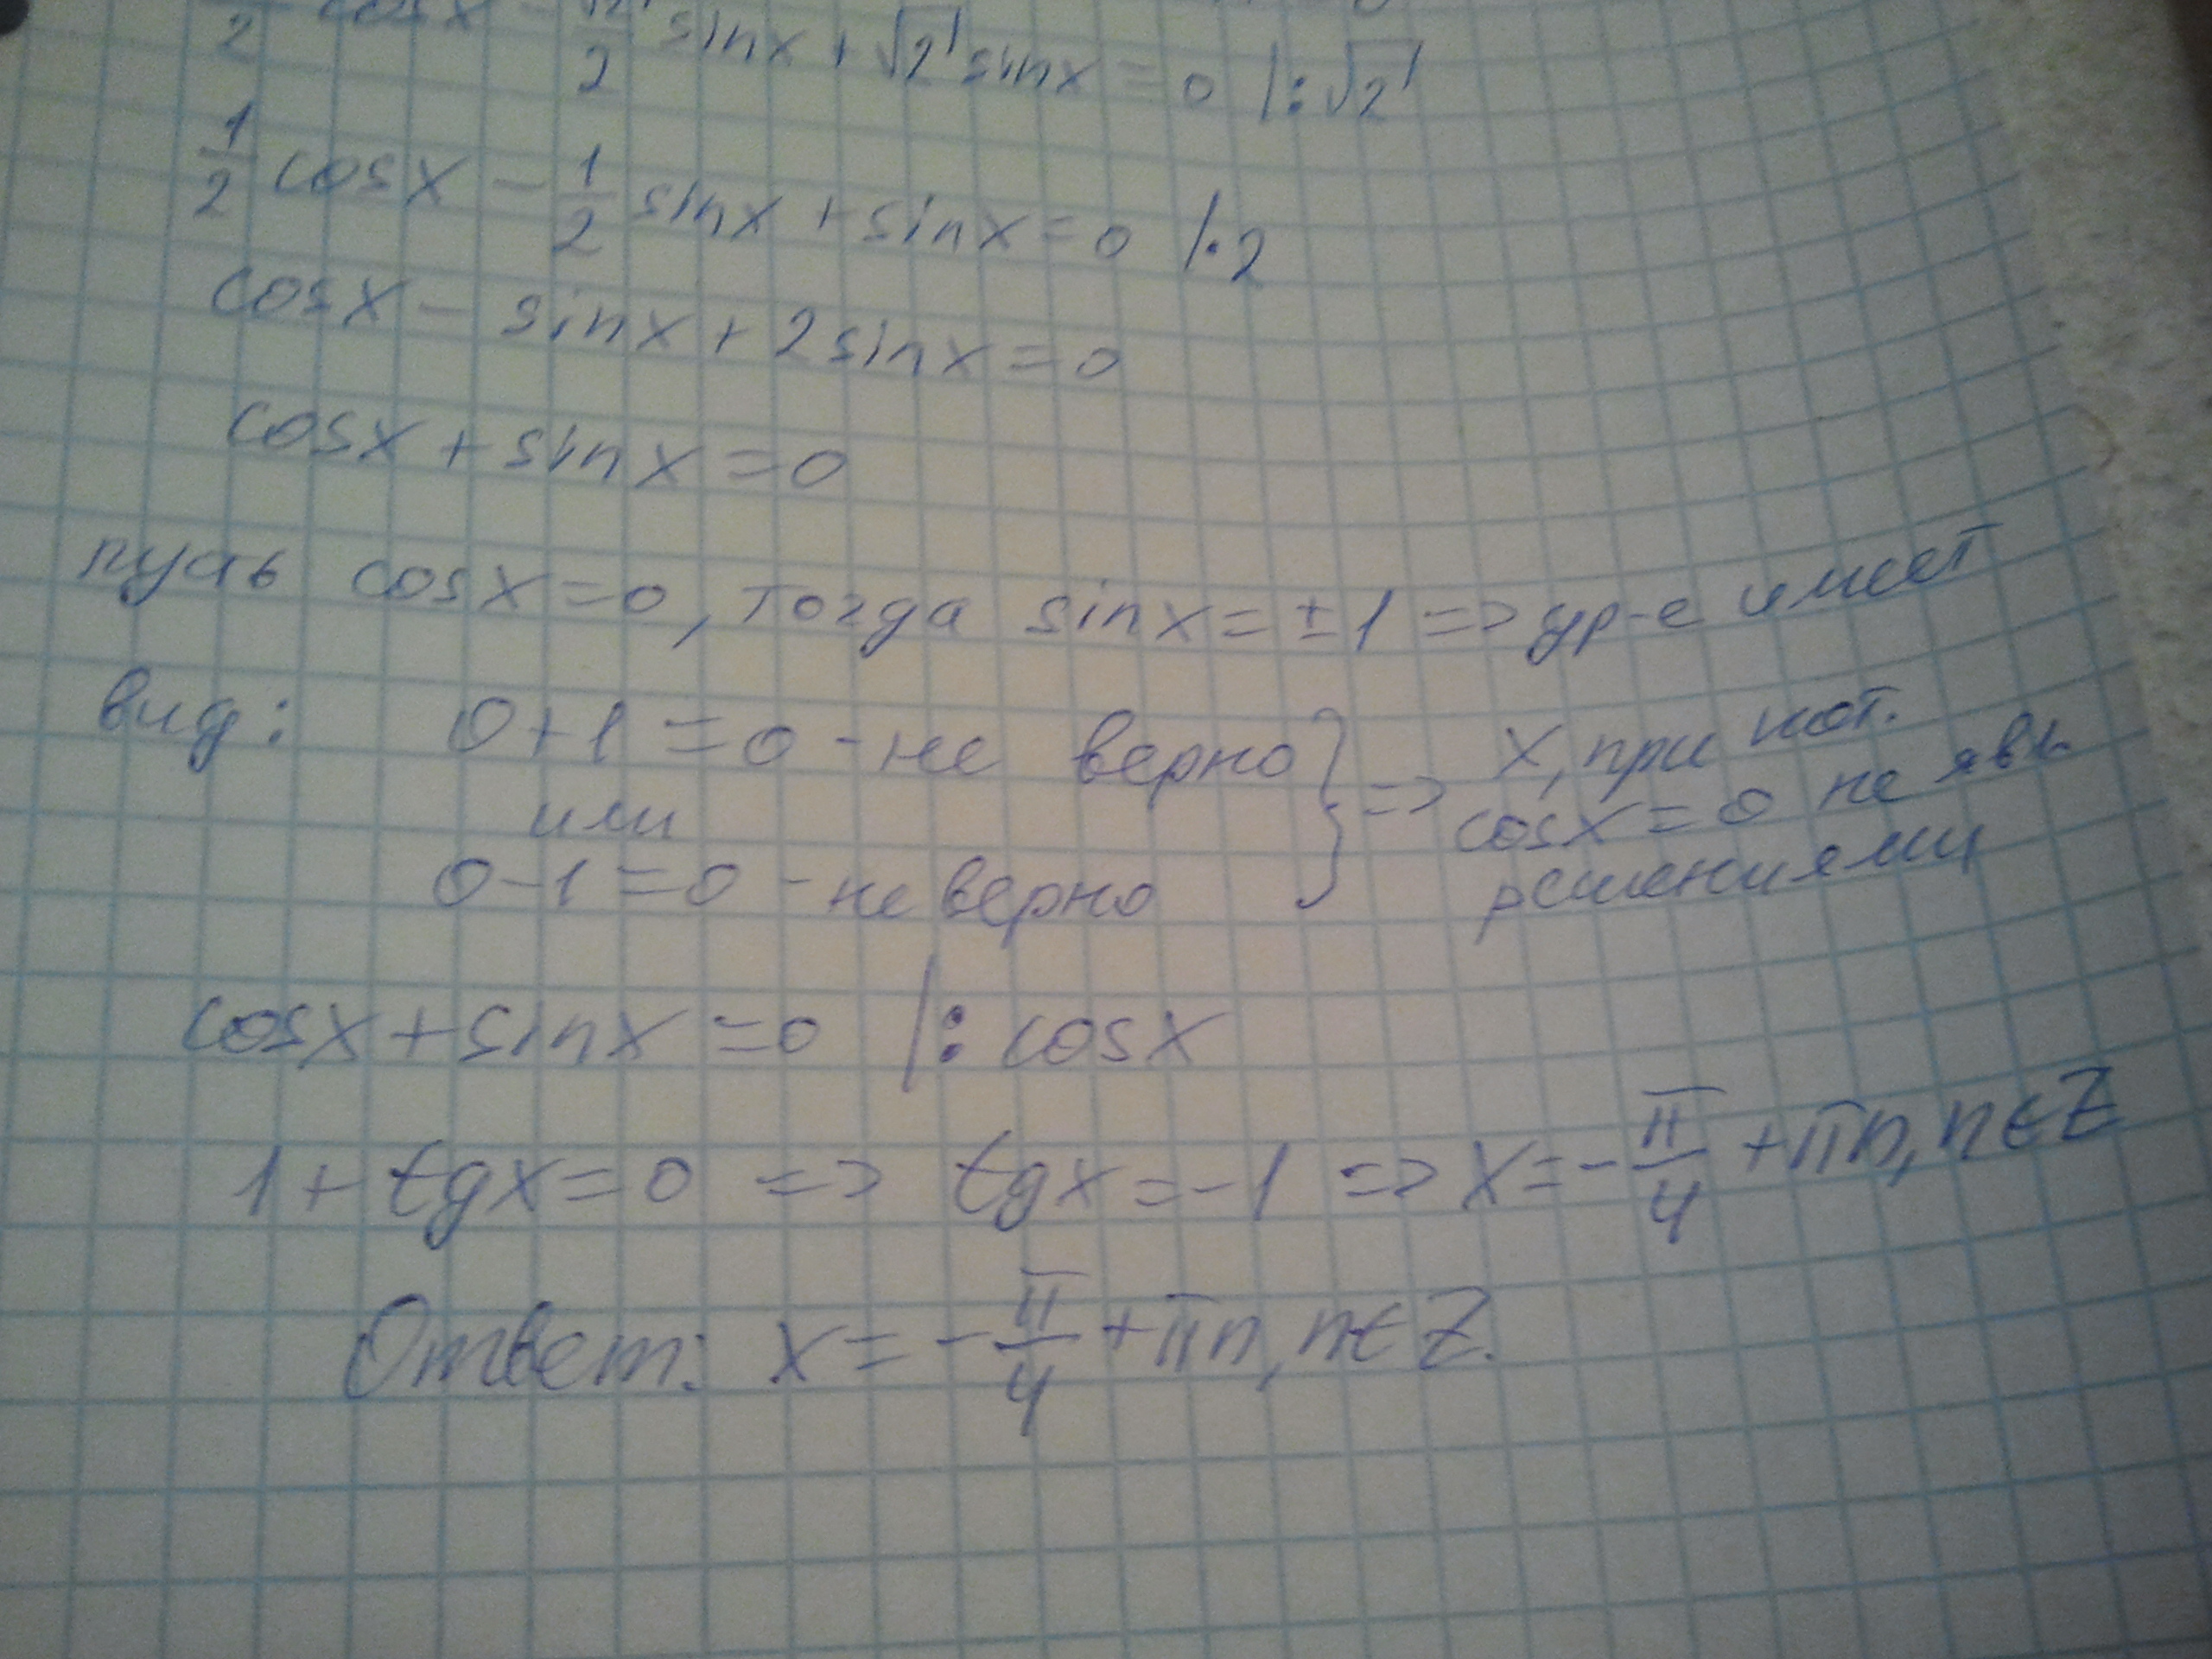 /2 cosx - √2/2 sinx + √2 sinx = 0 |:√2
1/2 cosx - 1/2 sinx + sinx = 0 |·2
cosx - sinx + 2sinx = 0
cosx + sinx = 0
пусть cosx = 0, тогда sinx = ±1 => ур-е имеет
вид: 0+1=0 - не верно
или
0-1=0 - не верно
} => x, при кот.
cosx = 0 не явл
решениями
cosx + sinx = 0 |: cosx
1 + tgx = 0 => tgx = -1 => x = -π/4 + πn, n∈Z
Ответ: x = -π/4 + πn, n∈Z.